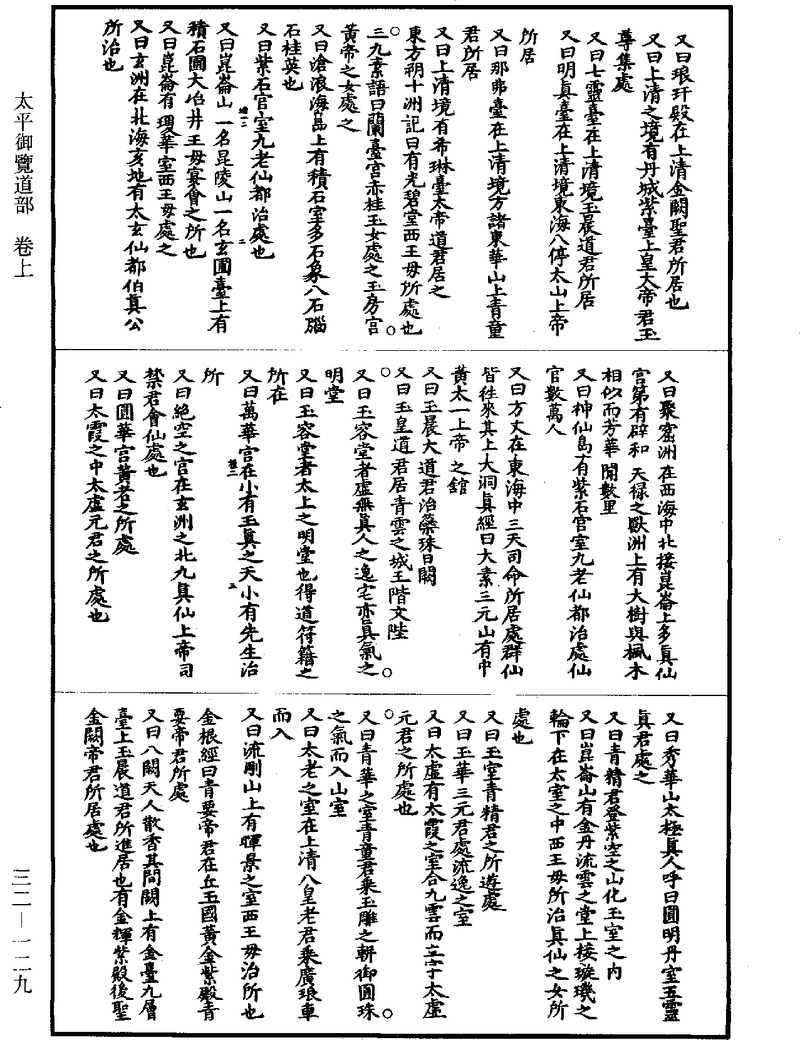 太平御覽道部　卷上
三二－一二九
又曰琅玕殿在上清金闕聖君所居也
又曰上清之境有丹城紫臺上皇大帝君玉
尊集處
又曰七靈臺在上清境玉晨道君所居
又曰明真臺在上清境東海八停太山上帝
所居
又曰那弗臺在上清境方諸東華山上青童
君所居
又曰上清境有希琳臺太帝道君居之
東方朔十洲記曰有光碧堂西王母所處也
三九素語曰蘭臺宮赤桂玉女處之玉房宮
黃帝之女處之
又曰滄浪海島上有積石室多石象八石腦
石桂英也
又曰紫石宮室九老仙都治處也
又曰崑崙山一名昆陵山一名玄圃臺上有
積石圃大冶井王母宴會之所也
又曰崑崙有瓊華室西王母處之
又曰玄洲在北海亥地有太玄仙都伯真公
所治也
又曰聚窟洲在西海中北接崑崙上多真仙
宮第有辟和 天祿之獸洲上有大樹與楓木
相似而芳華 聞數里
又曰神仙島有紫石宮室九老仙都治處仙
官數萬人
又曰方丈在東海中三天司命所居處群仙
皆往來其上大洞真經曰大素三元山有中
黃太一上帝之舘
又曰玉晨大道君治藥珠日闕
又曰玉皇道君居青雲之城玉階文陛
又曰玉容堂者虛無真人之逸宅亦真氣之
明堂
又曰玉容堂者太上之明堂也得道符籍之
所在
又曰萬華宮在小有玉真之天小有先生治
所
又曰絕空之宮在玄洲之北九真仙上帝司
禁君會仙處也
又曰圓華宮黃老之所處
又曰太霞之中太虛元君之所處也
又曰秀華山太極真人呼曰圓明丹室五靈
真君處之
又曰青精君登紫空之山化玉室之内
又曰崑崙山有金丹流雲之堂上接璇璣之
輪下在太室之中西王母所治真仙之女所
處也
又曰玉室青精君之所遊處
又曰玉華三元君處流逸之室
又曰太虛有太霞之室合九雲而立宇太虛
元君之所處也
又曰青華之室青童君乘玉雕之軿御圓珠
之氣而入山室
又曰太老之室在上清八皇老君乘廣琅車
而入
又曰流剛山上有暉景之室西王母治所也
金根經曰青要帝君在丘玉國黃金紫殿青
要帝君所處
又曰八闕天人散香其間闕上有金臺九層
臺上玉晨道君所進居也有金輝紫殿後聖
金闕帝君所居處也